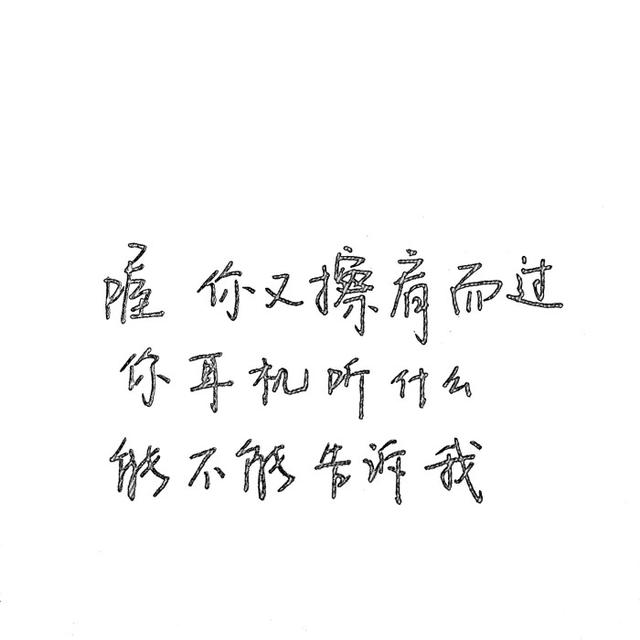 喔 你又擦肩而过
你耳机听什么
能不能告诉我